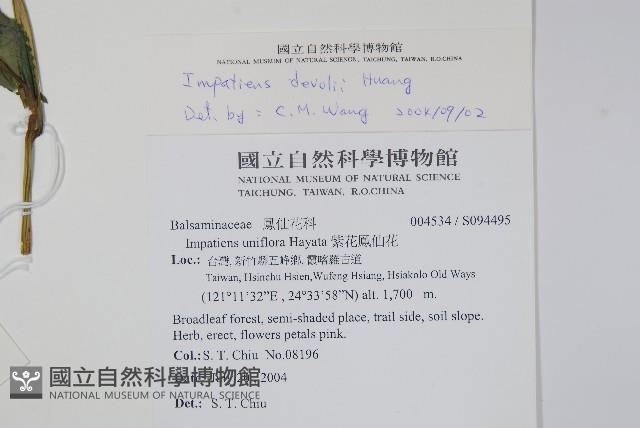 國立自然科學博物館
NATIONAL MUSEUM OF NATURAL SCIENCE, TAICHUNG, TAIWAN, R.O.CHINA
Impatiens devolii Huang
Det. by: C. M. Wang 2004/09/02
國立自然科學博物館
NATIONAL MUSEUM OF NATURAL SCIENCE
TAICHUNG, TAIWAN, R.O.CHINA
Balsaminaceae 鳳仙花科 004534 / S094495
Impatiens uniflora Hayata 紫花鳳仙花
Loc.: 台灣, 新竹縣五峰鄉, 霞喀羅古道
Taiwan, Hsinchu Hsien,Wufeng Hsiang, Hsiakolo Old Ways
(121°11'32"E , 24°33'58"N) alt. 1,700 m.
Broadleaf forest, semi-shaded place, trail side, soil slope.
Herb, erect, flowers petals pink.
Col.: S. T. Chiu No.08196
2004
Det.: S. T. Chiu
國立自然科學博物館
NATIONAL MUSEUM OF NATURAL SCIENCE